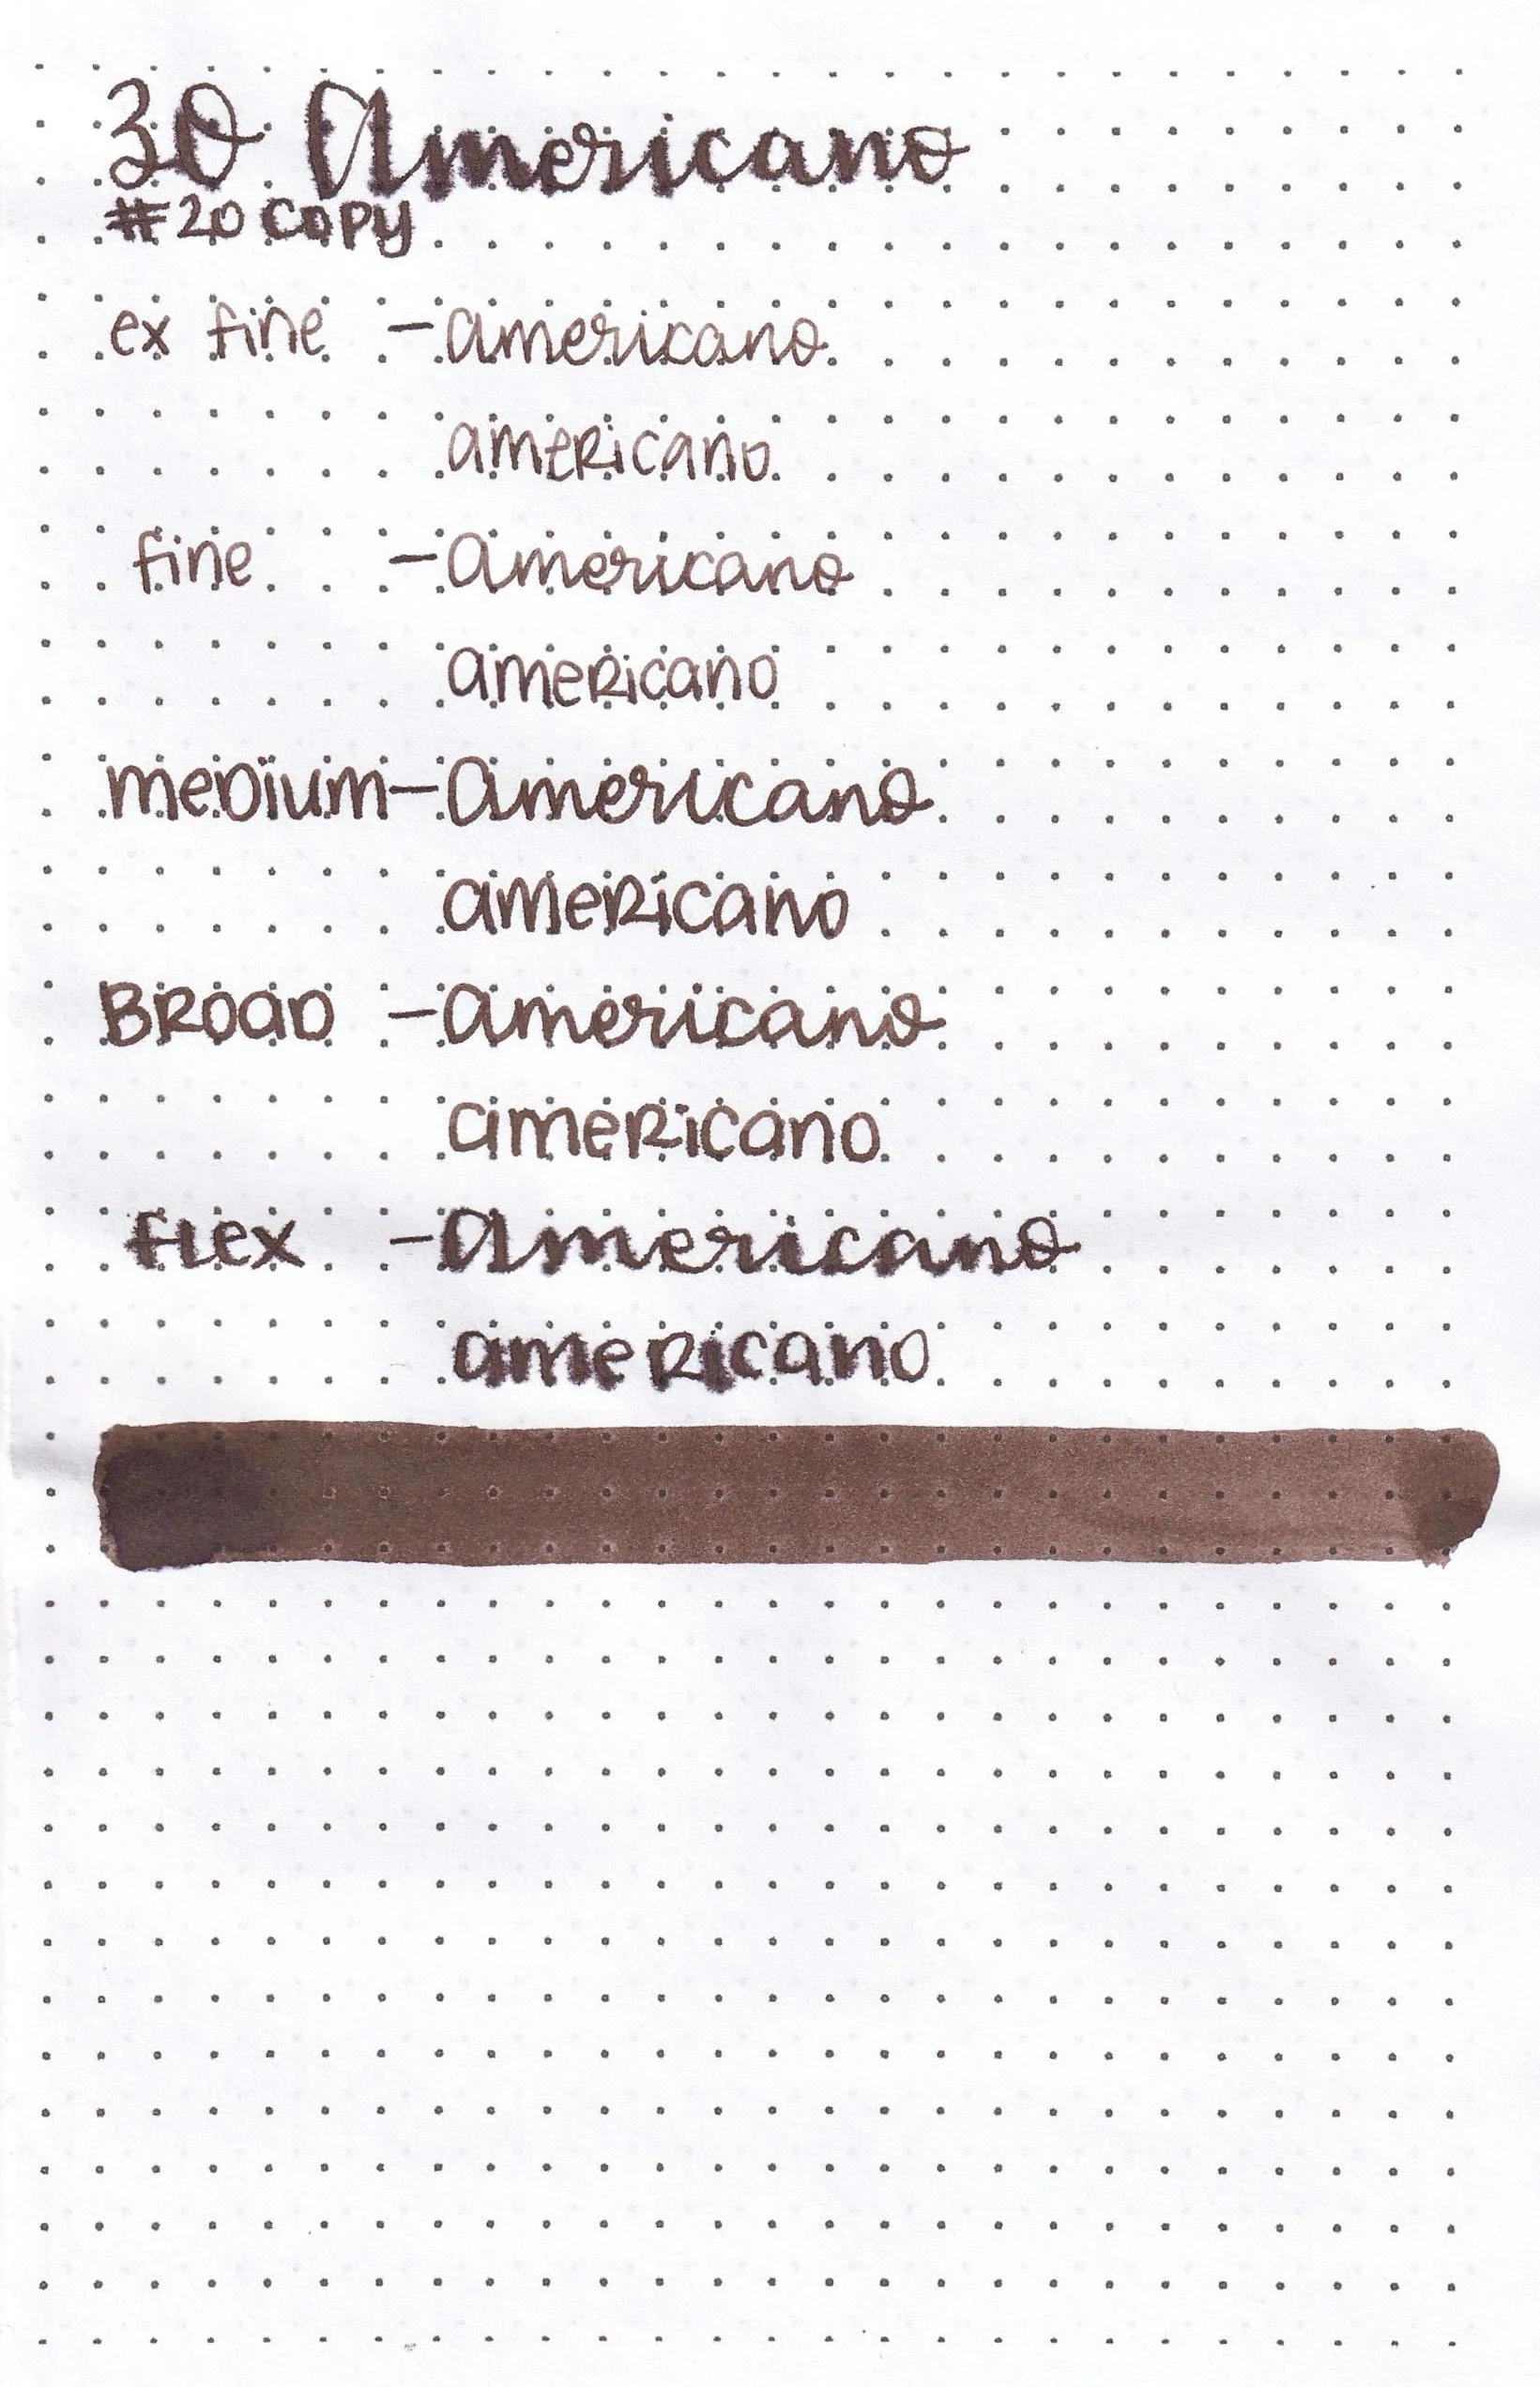 30 Americano
#20 COPY
ex fine - americano
americano
fine - americano
americano
medium - americano
americano
BROAD - americano
americano
flex - americano
americano